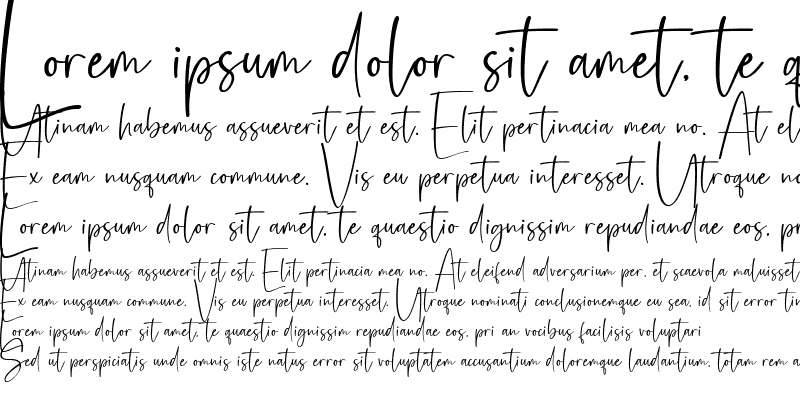 Lorem ipsum dolor sit amet, te
Atinam habemus assueverit et est. Elit pertinacia mea no. At
Ex eam nusquam commune. Vis eu perpetua interesset. Utroque
Lorem ipsum dolor sit amet, te quaestio dignissim repudiandae eos,
Atinam habemus assueverit et est. Elit pertinacia mea no. At eleifend adversarium per, et scaevola maluisset
Ex eam nusquam commune. Vis eu perpetua interesset. Utroque nominati conclusionemque eu sea, id sit error
Lorem ipsum dolor sit amet, te quaestio dignissim repudiandae eos, pri an vocibus facilisis voluptari
Sed ut perspiciatis unde omnis iste natus error sit voluptatem accusantium doloremque laudantium, totam rem